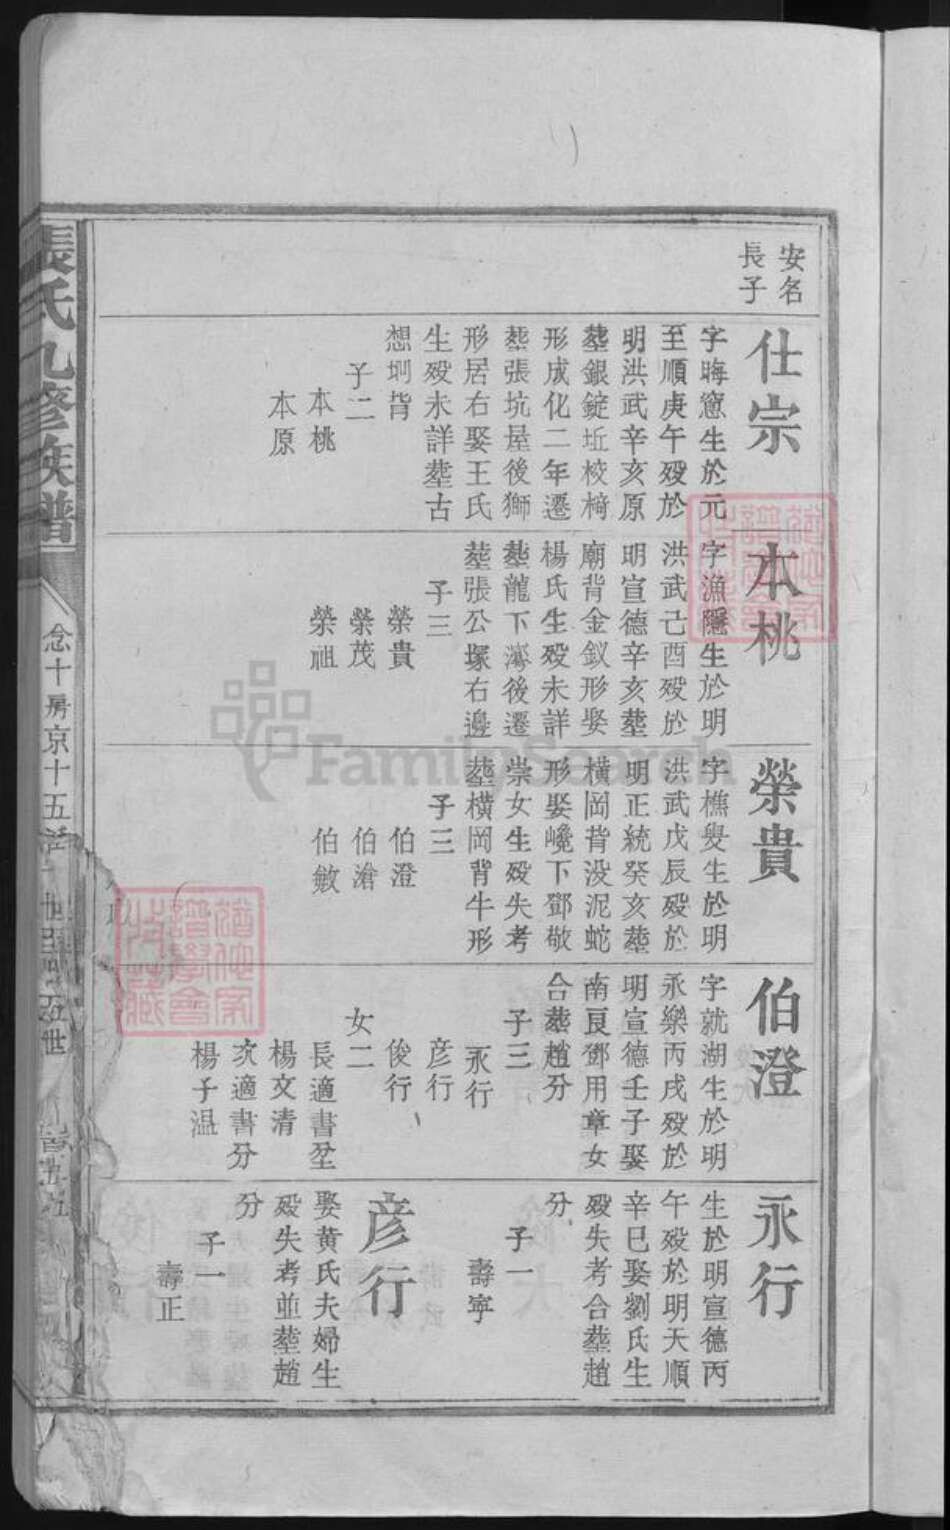 安名
長子
仕宗
字晦窻生於元
至順庚午殁於
明洪武辛亥原
塟銀錠坵校椅
形成化二年遷
塟張坑屋後獅
形居右娶王氏
生殁未詳塟古
想垇背
子二
本桃
本原
本桃
字漁隱生於明
洪武己酉殁於
明宣德辛亥塟
廟背金釵形娶
楊氏生殁未詳
塟龍下後遷
塟張公塚右邊
子三
榮貴
榮茂
榮祖
榮貴
字樵叟生於明
洪武戊辰殁於
明正統癸亥塟
橫岡背没泥蛇
形娶巉下鄧敬
崇女生殁失考
塟橫岡背牛形
子三
伯澄
伯滄
伯敏
伯澄
字就湖生於明
永樂丙戌殁於
明宣德壬子娶
南良鄧用章女
合塟趙分
子三
永行
彦行
俊行
女二
長適書坌
楊文清
次適書分
楊子温
永行
生於明宣德丙
午殁於明天順
辛巳娶劉氏生
殁失考合塟趙
分
子一
壽寧
彦行
娶黄氏夫婦生
殁失考並塟趙
分
子一
壽正
張氏九修族譜
念十房京十五
世
五世
FamilySearch